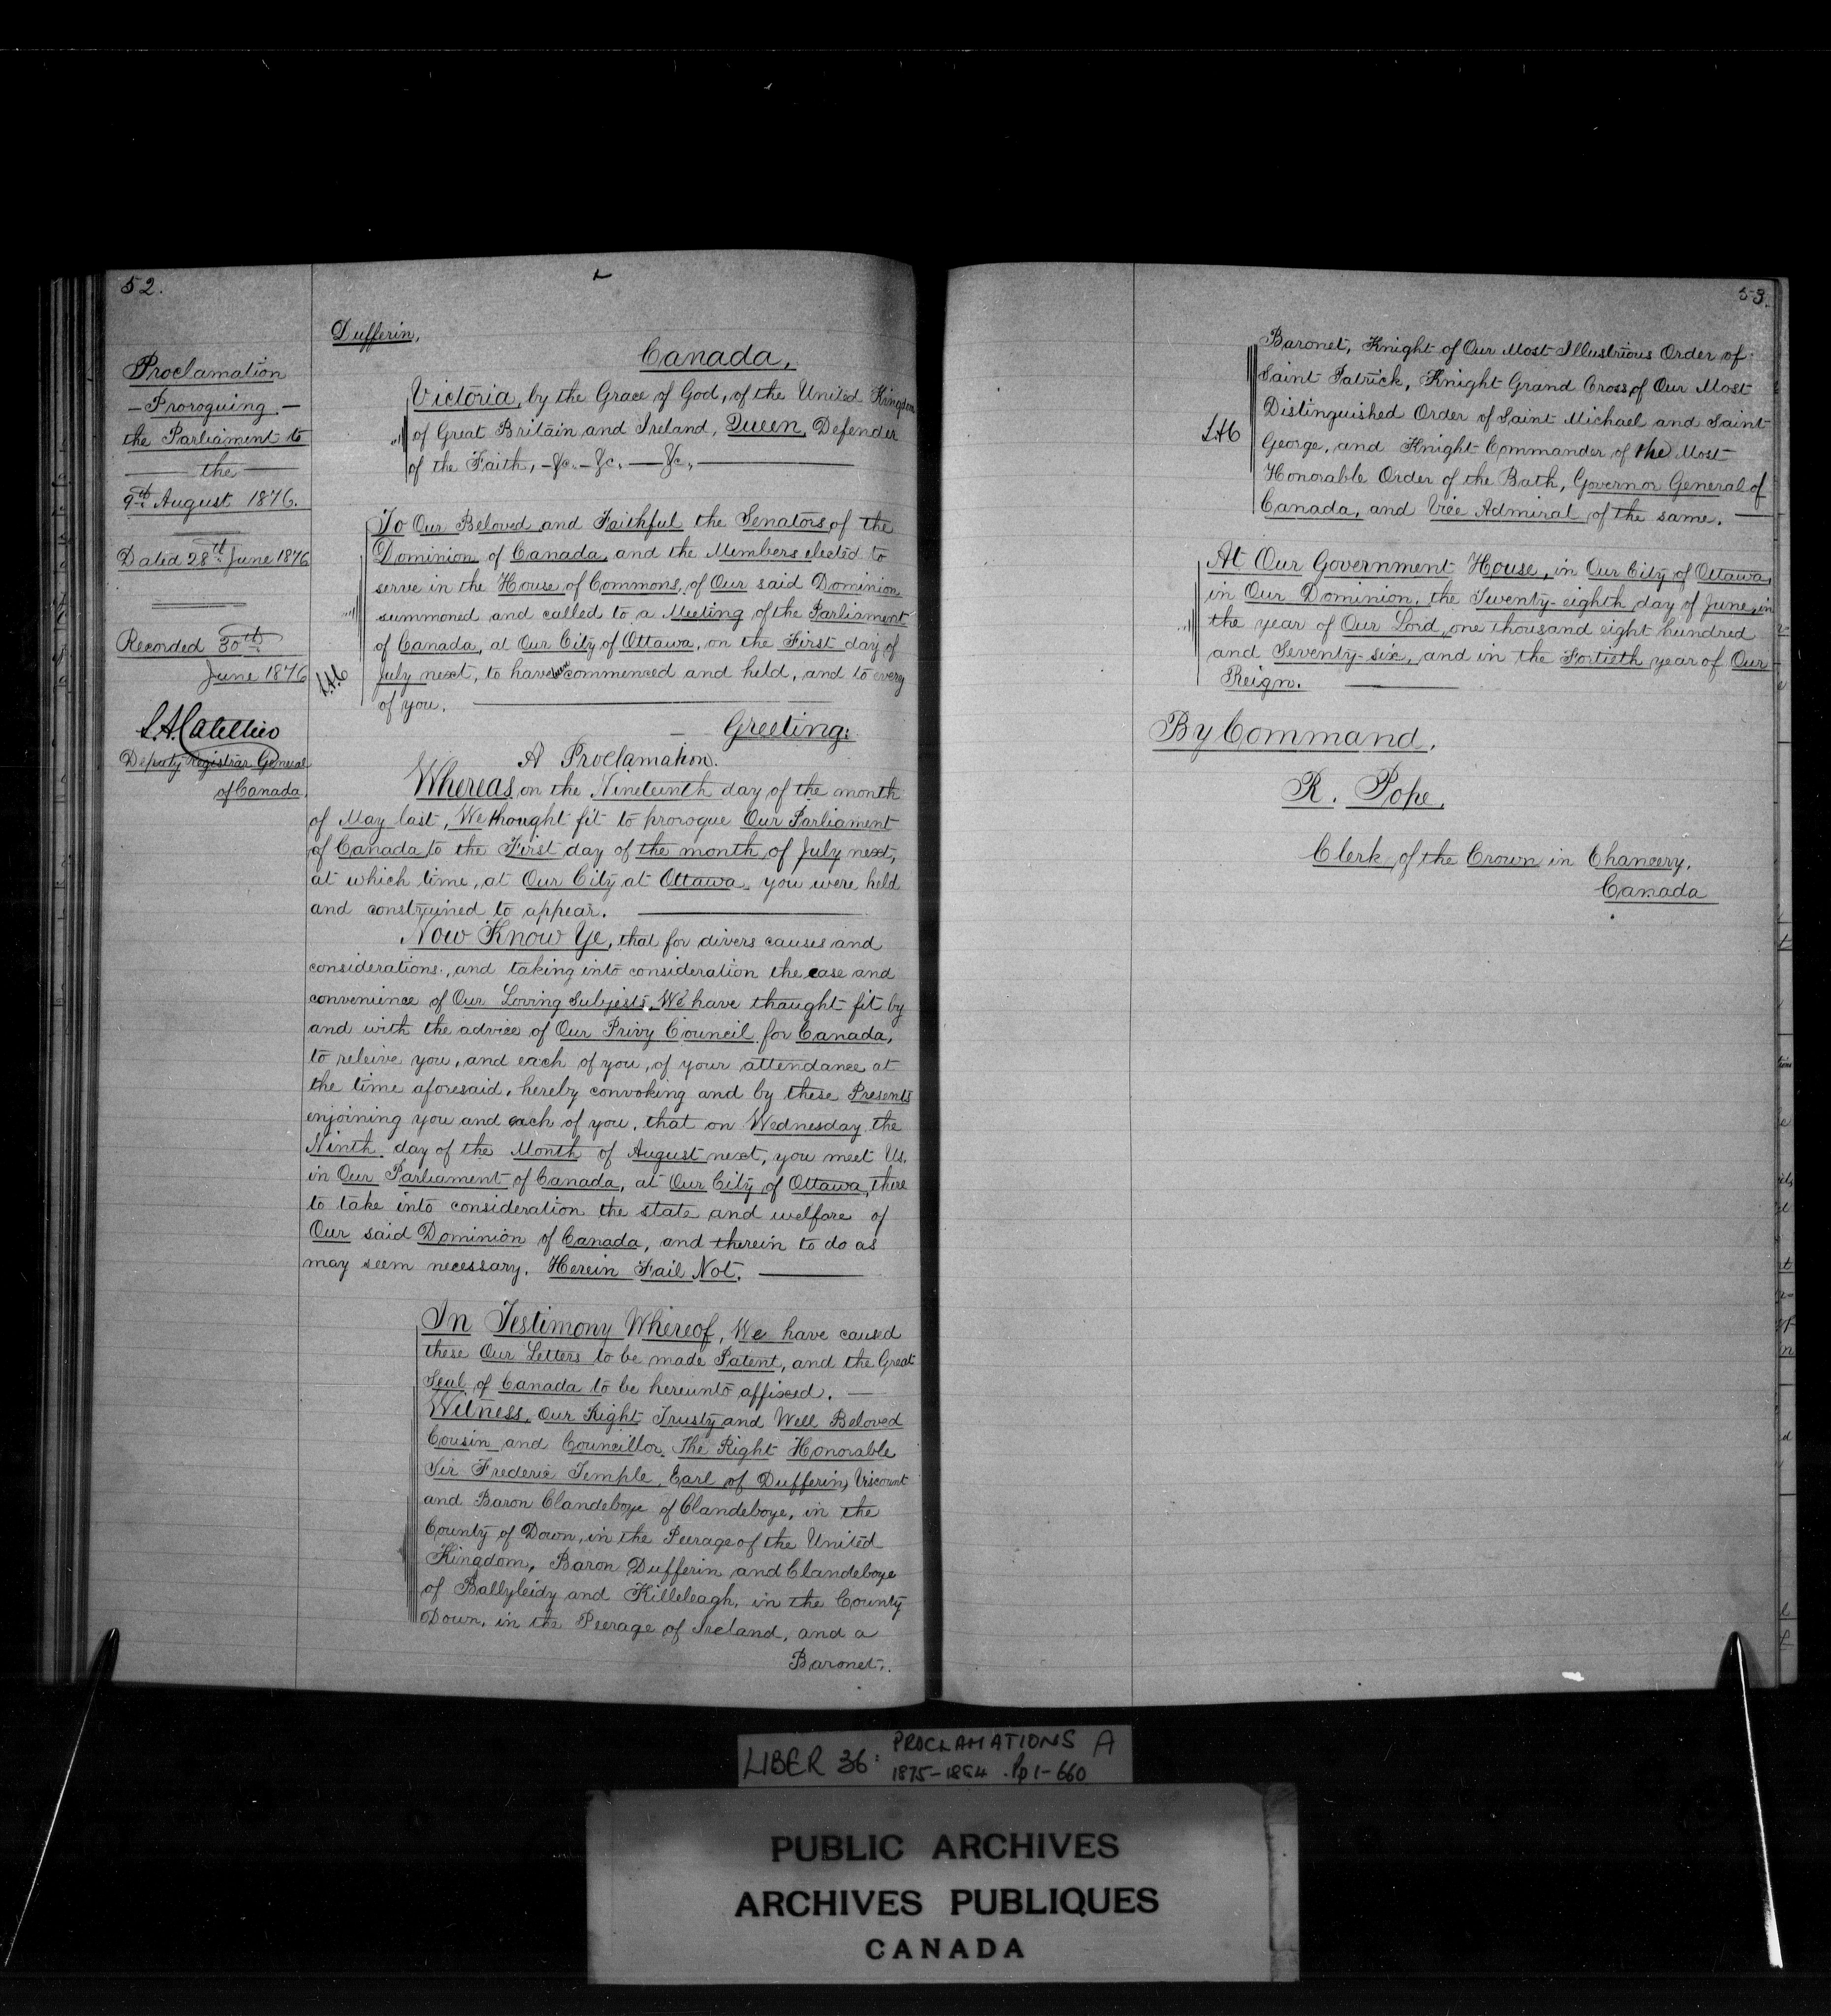 52.
Proclamation
- Proroguing -
the Parliament to
the
9th August 1876.
Dated 28th June 1876
Recorded 30th
June 1876
Deputy Registrar General
of Canada.
Dufferin,
Canada,
Victoria, by the Grace of God, of the United Kingdom
of Great Britain and Ireland, Queen, Defender
of the Faith, - &c. - &c. - &c.,
To Our Beloved and Faithful the Senators of the
Dominion of Canada, and the Members elected to
serve in the House of Commons, of Our said Dominion
summoned and called to a Meeting of the Parliament
of Canada, at Our City of Ottawa, on the First day of
July next, to have been commenced and held, and to every
of you.
Greeting:
A Proclamation.
Whereas on the Nineteenth day of the month
of May last, We thought fit to prorogue Our Parliament
of Canada to the First day of the month of July next,
at which time, at Our City at Ottawa, you were held
and constrained to appear.
Now Know Ye, that for divers causes and
considerations, and taking into consideration the ease and
convenience of Our Loving Subjects, We have thought fit by
and with the advice of Our Privy Council for Canada,
to releive you, and each of you, of your attendance at
the time aforesaid, hereby convoking and by these Presents
enjoining you and each of you, that on Wednesday, the
Ninth day of the Month of August next, you meet Us,
in Our Parliament of Canada, at Our City of Ottawa, there
to take into consideration the state and welfare of
Our said Dominion of Canada, and therein to do as
may seem necessary. Herein Fail Not.
In Testimony Whereof, We have caused
these Our Letters to be made Patent, and the Great
Seal of Canada to be hereunto affixed.
Witness, Our Right Trusty and Well Beloved
Cousin and Councillor The Right Honorable
Sir Frederic Temple, Earl of Dufferin, Viscount
and Baron Clandeboye of Clandeboye, in the
County of Down, in the Peerage of the United
Kingdom, Baron Dufferin and Clandeboye
of Ballyleidy and Killeleagh, in the County
Down, in the Peerage of Ireland, and a
Baronet.
53.
Baronet, Knight of Our Most Illustrious Order of
Saint Patrick, Knight Grand Cross of Our Most
Distinguished Order of Saint Michael and Saint
George, and Knight Commander of the Most
Honorable Order of the Bath, Governor General of
Canada, and Vice Admiral of the same.
At Our Government House, in Our City of Ottawa,
in Our Dominion, the Twenty-eighth day of June, in
the year of Our Lord, one thousand eight hundred
and Seventy-six, and in the Fortieth year of Our
Reign.
By Command,
R. Pope,
Clerk of the Crown in Chancery,
Canada
LIBER 36: PROCLAMATIONS A
1875-1884 . Pp 1-660
PUBLIC ARCHIVES
ARCHIVES PUBLIQUES
CANADA